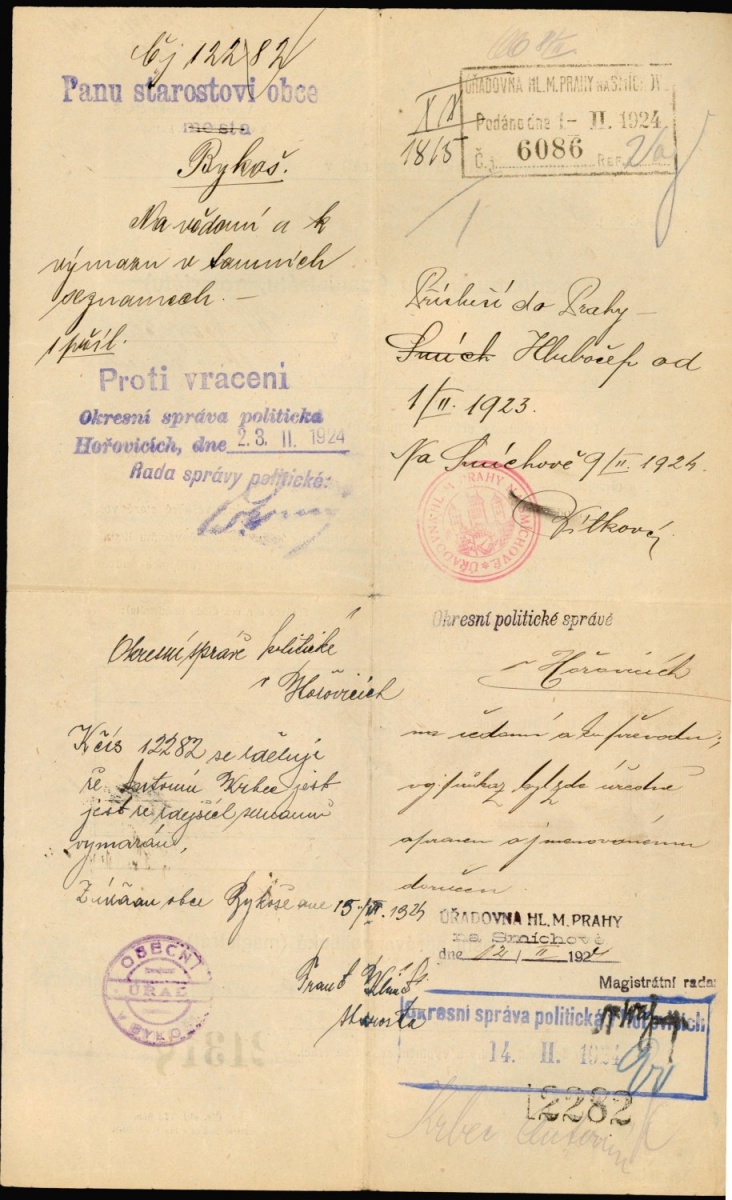 Čj 12282
Panu starostovi obce
města
Bykoš.
Na vědomí a k
výmazu v tamních
seznamech. —
1 příl.
Proti vracení
Okresní správa politická
Hořovicích, dne 23. II. 1924
Rada správy politické:
ÚŘADOVNA HL. M. PRAHY NA SMÍCHOVĚ
Podáno dne 1- II. 1924
Č. j. 6086
1815
Přísluší do Prahy —
Smích Hlubočep od
1/II. 1923.
Na Smíchově 9/II. 1924.
ÚŘADOVNA HL. M. PRAHY NA SMÍCHOVĚ
Okresní správě politické
v Hořovicích
K čís 12282 se sděluje
že Antonín Krbec jest
jest ze zdejších seznamů
vymazán,
Z úřadu obce Bykoše dne 15/III 1924
Frant.
starosta
OBECNÍ
ÚŘAD
v BYKOŠI
Okresní politické správě
v Hořovicích
na vědomí a k převodu;
úředně
a jmenovanému
doručen
ÚŘADOVNA HL. M. PRAHY
na Smíchově
dne 12/II 1924
Magistrátní rada:
Okresní správa politická v Hořovicích
14. II. 1924
12282
Krbec Antonín